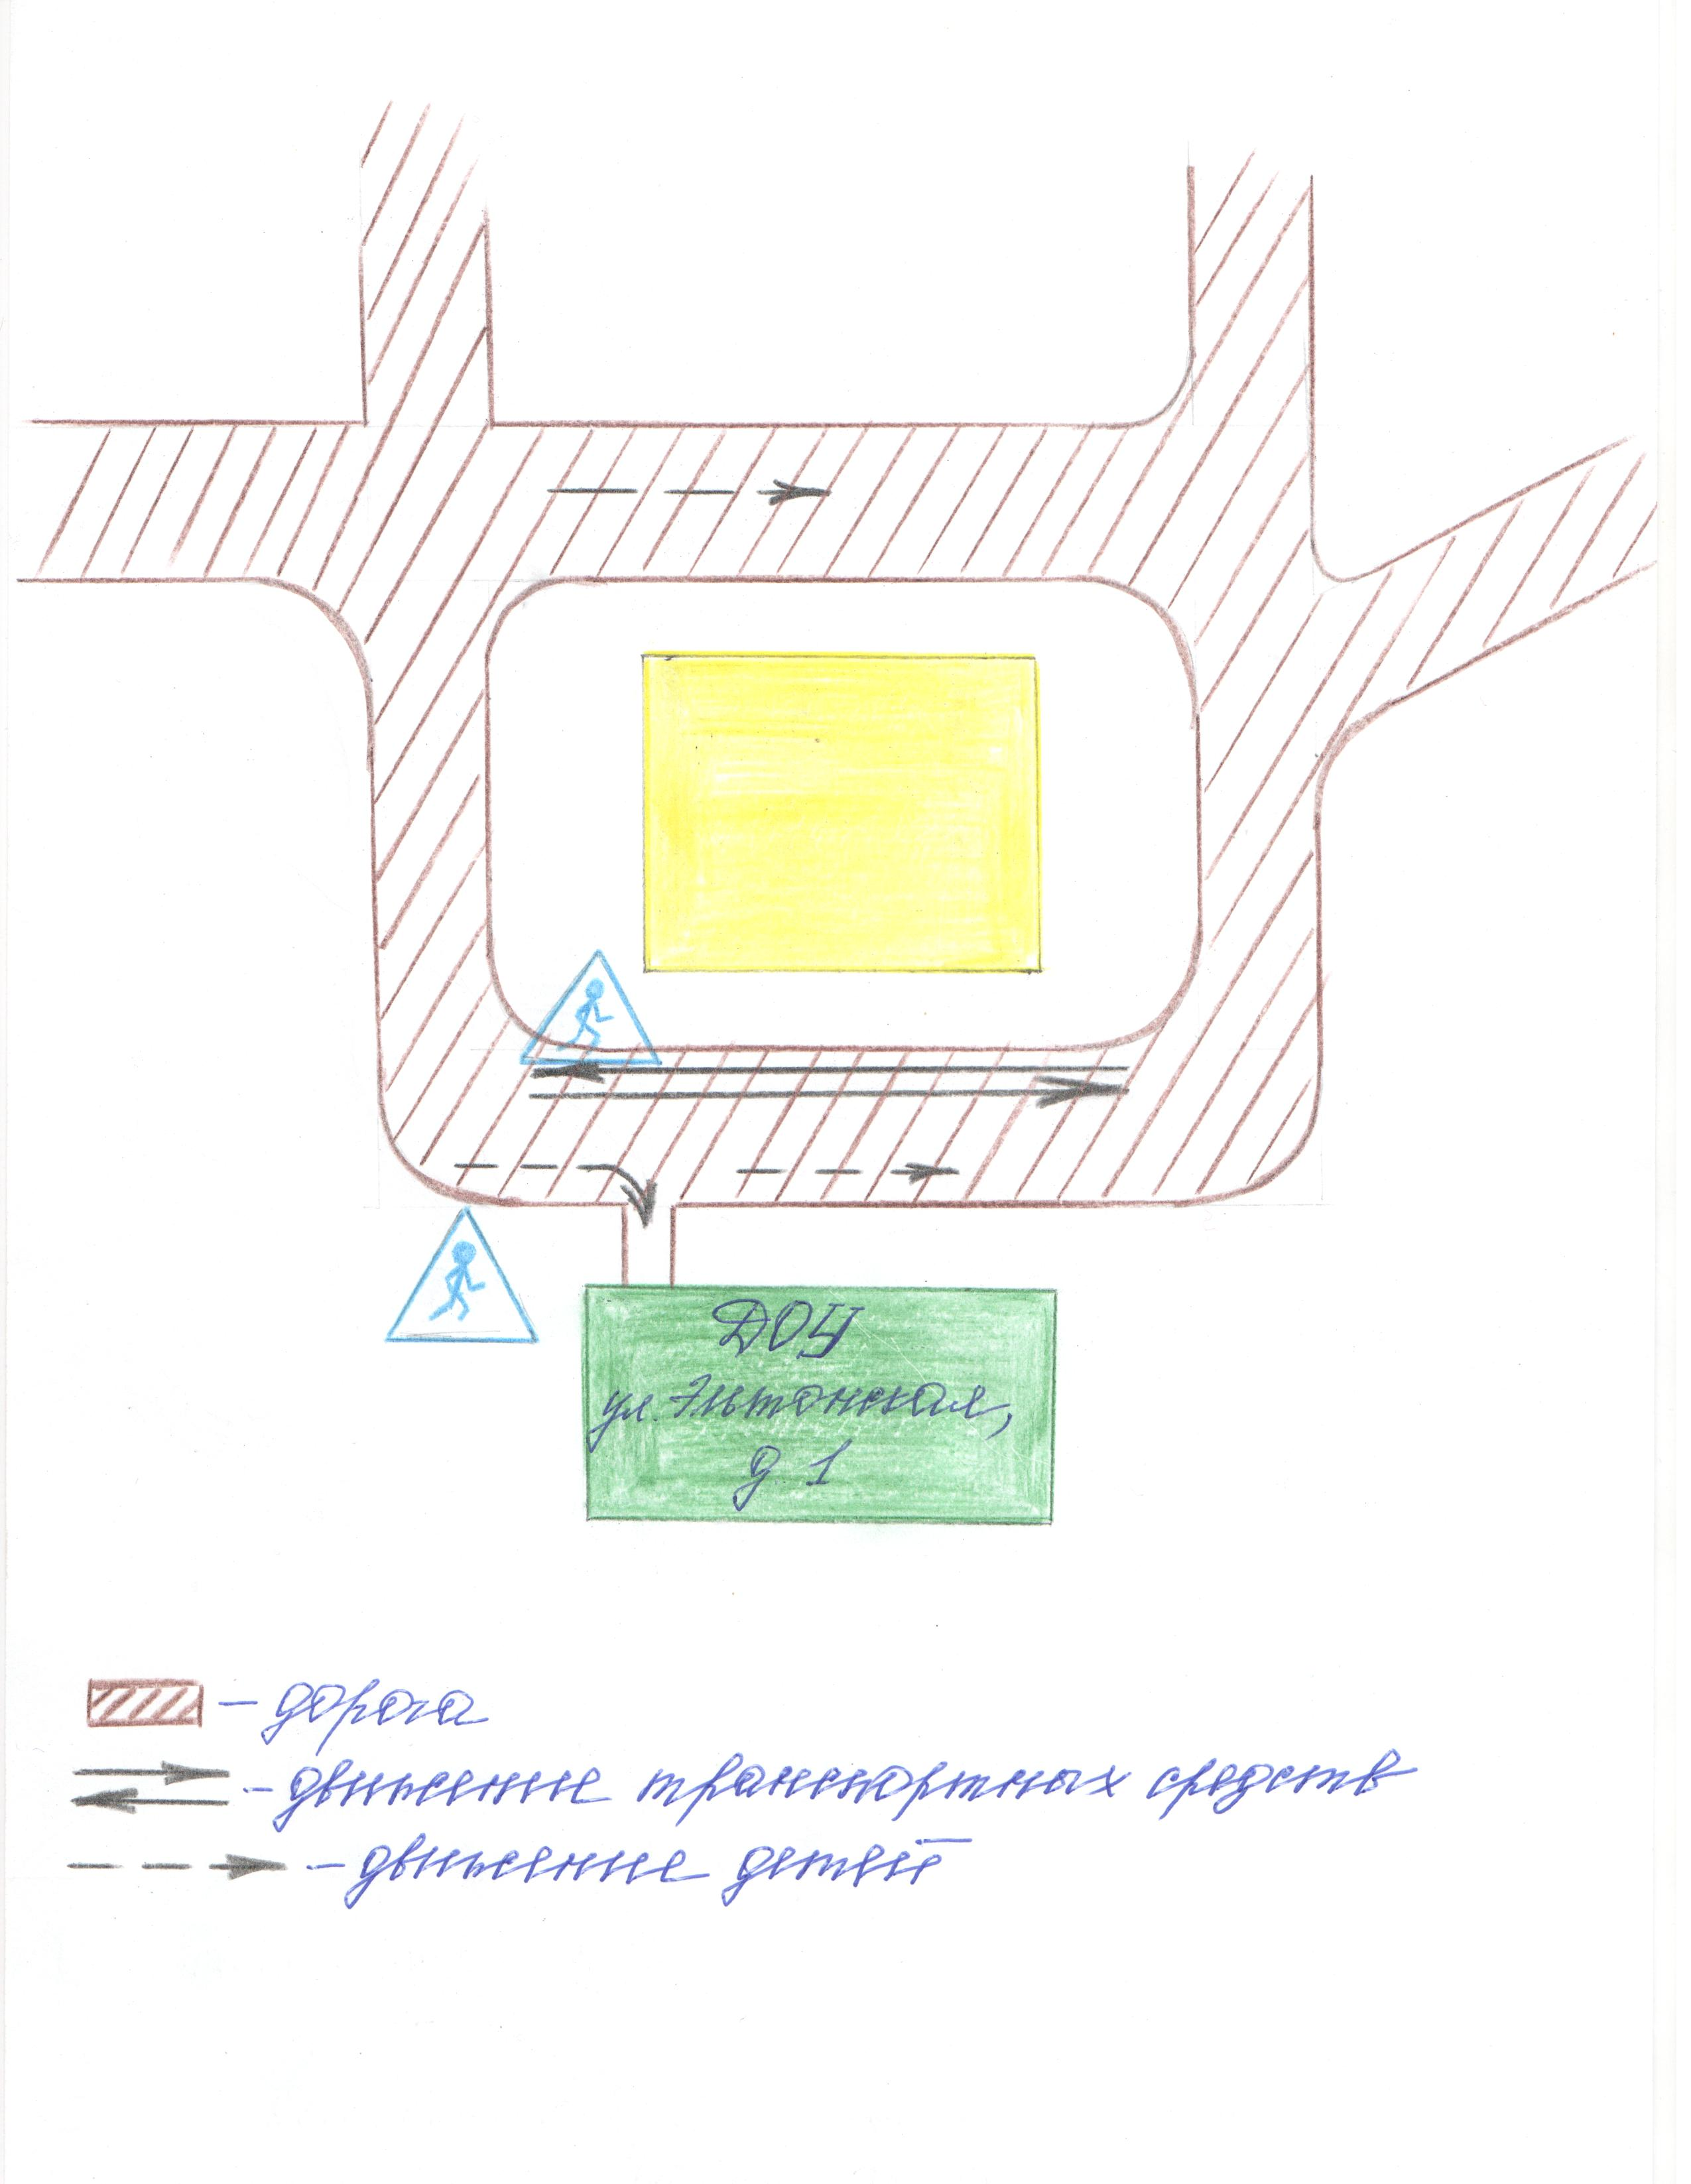 ДОУ
ул. Эльтонская,
д. 1
– дорога
– движение транспортных средств
– движение детей